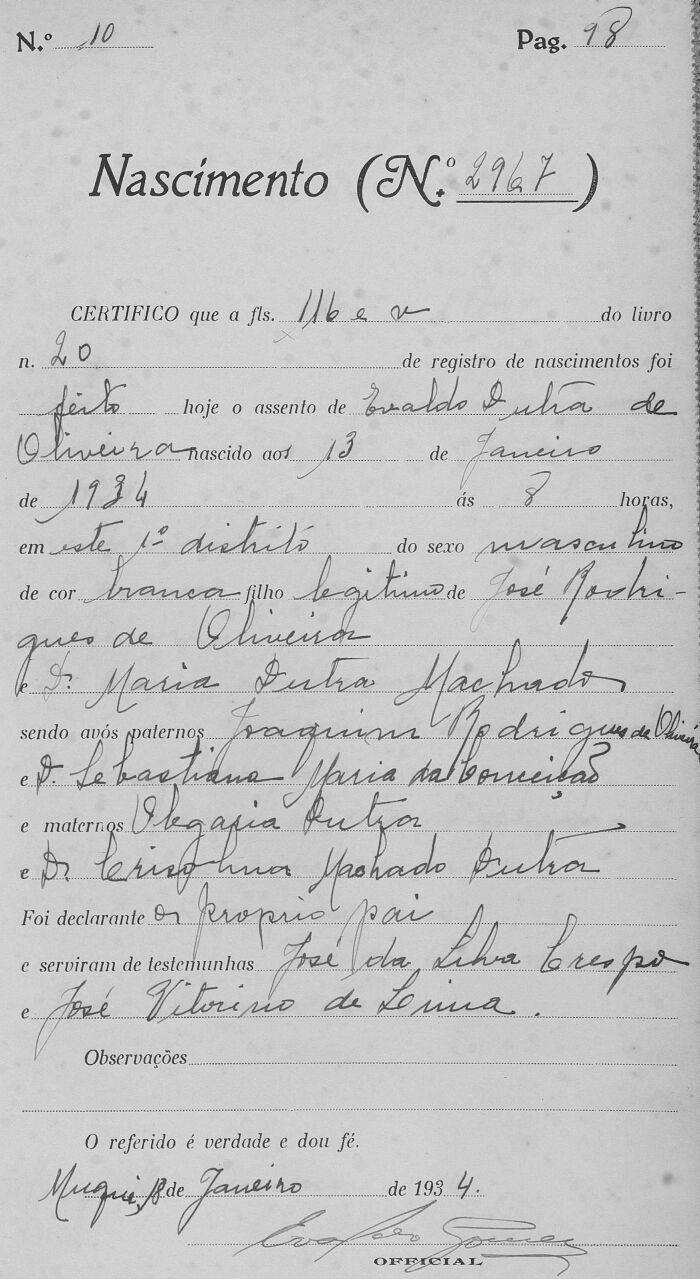 N.º 10 Pag. 98
Nascimento (N.º 2967)
CERTIFICO que a fls. 116 e v do livro
n. 20 de registro de nascimentos foi
feito hoje o assento de Evaldo Dutra de
Oliveira nascido aos 13 de Janeiro
de 1934 ás 8 horas,
em este 1º distrito do sexo masculino
de cor branca filho legitimo de José Rodri-
gues de Oliveira
e D. Maria Dutra Machado
sendo avós paternos Joaquim Rodrigues de Oliveira
e D. Sebastiana Maria da Conceição
e maternos Olegaria Dutra
e D. Machado Dutra
Foi declarante o proprio pai
e serviram de testemunhas José da Silva Crespo
e José Vitorino de Lima.
Observações
O referido é verdade e dou fé.
Muqui, 18 de Janeiro de 1934.
OFFICIAL